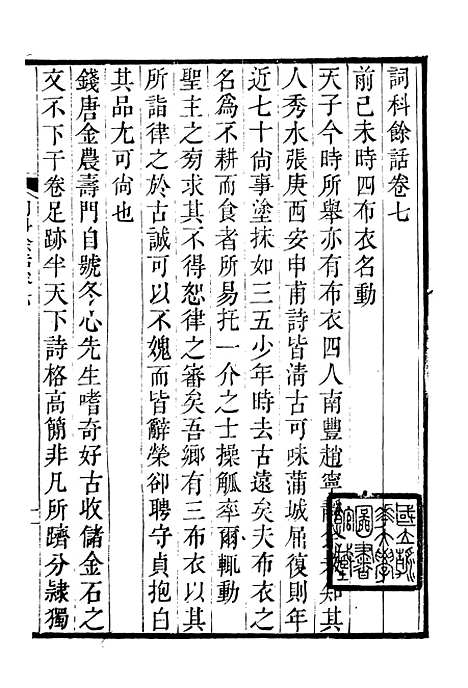 詞科餘話卷七
前己未時四布衣名動
天子今時所舉亦有布衣四人南豐趙寧 知其
人秀水張庚西安申甫詩皆清古可味蒲城屈復則年
近七十尚事塗抹如三五少年時去古遠矣夫布衣之
名爲不耕而食者所易托一介之士操觚率爾輒動
聖主之芻求其不得恕律之審矣吾鄉有三布衣以其
所詣律之於古誠可以不媿而皆辭榮卻聘守貞抱白
其品尤可尚也
錢唐金農壽門自號冬心先生嗜奇好古收儲金石之
文不下千卷足跡半天下詩格高簡非凡所躋分隷獨